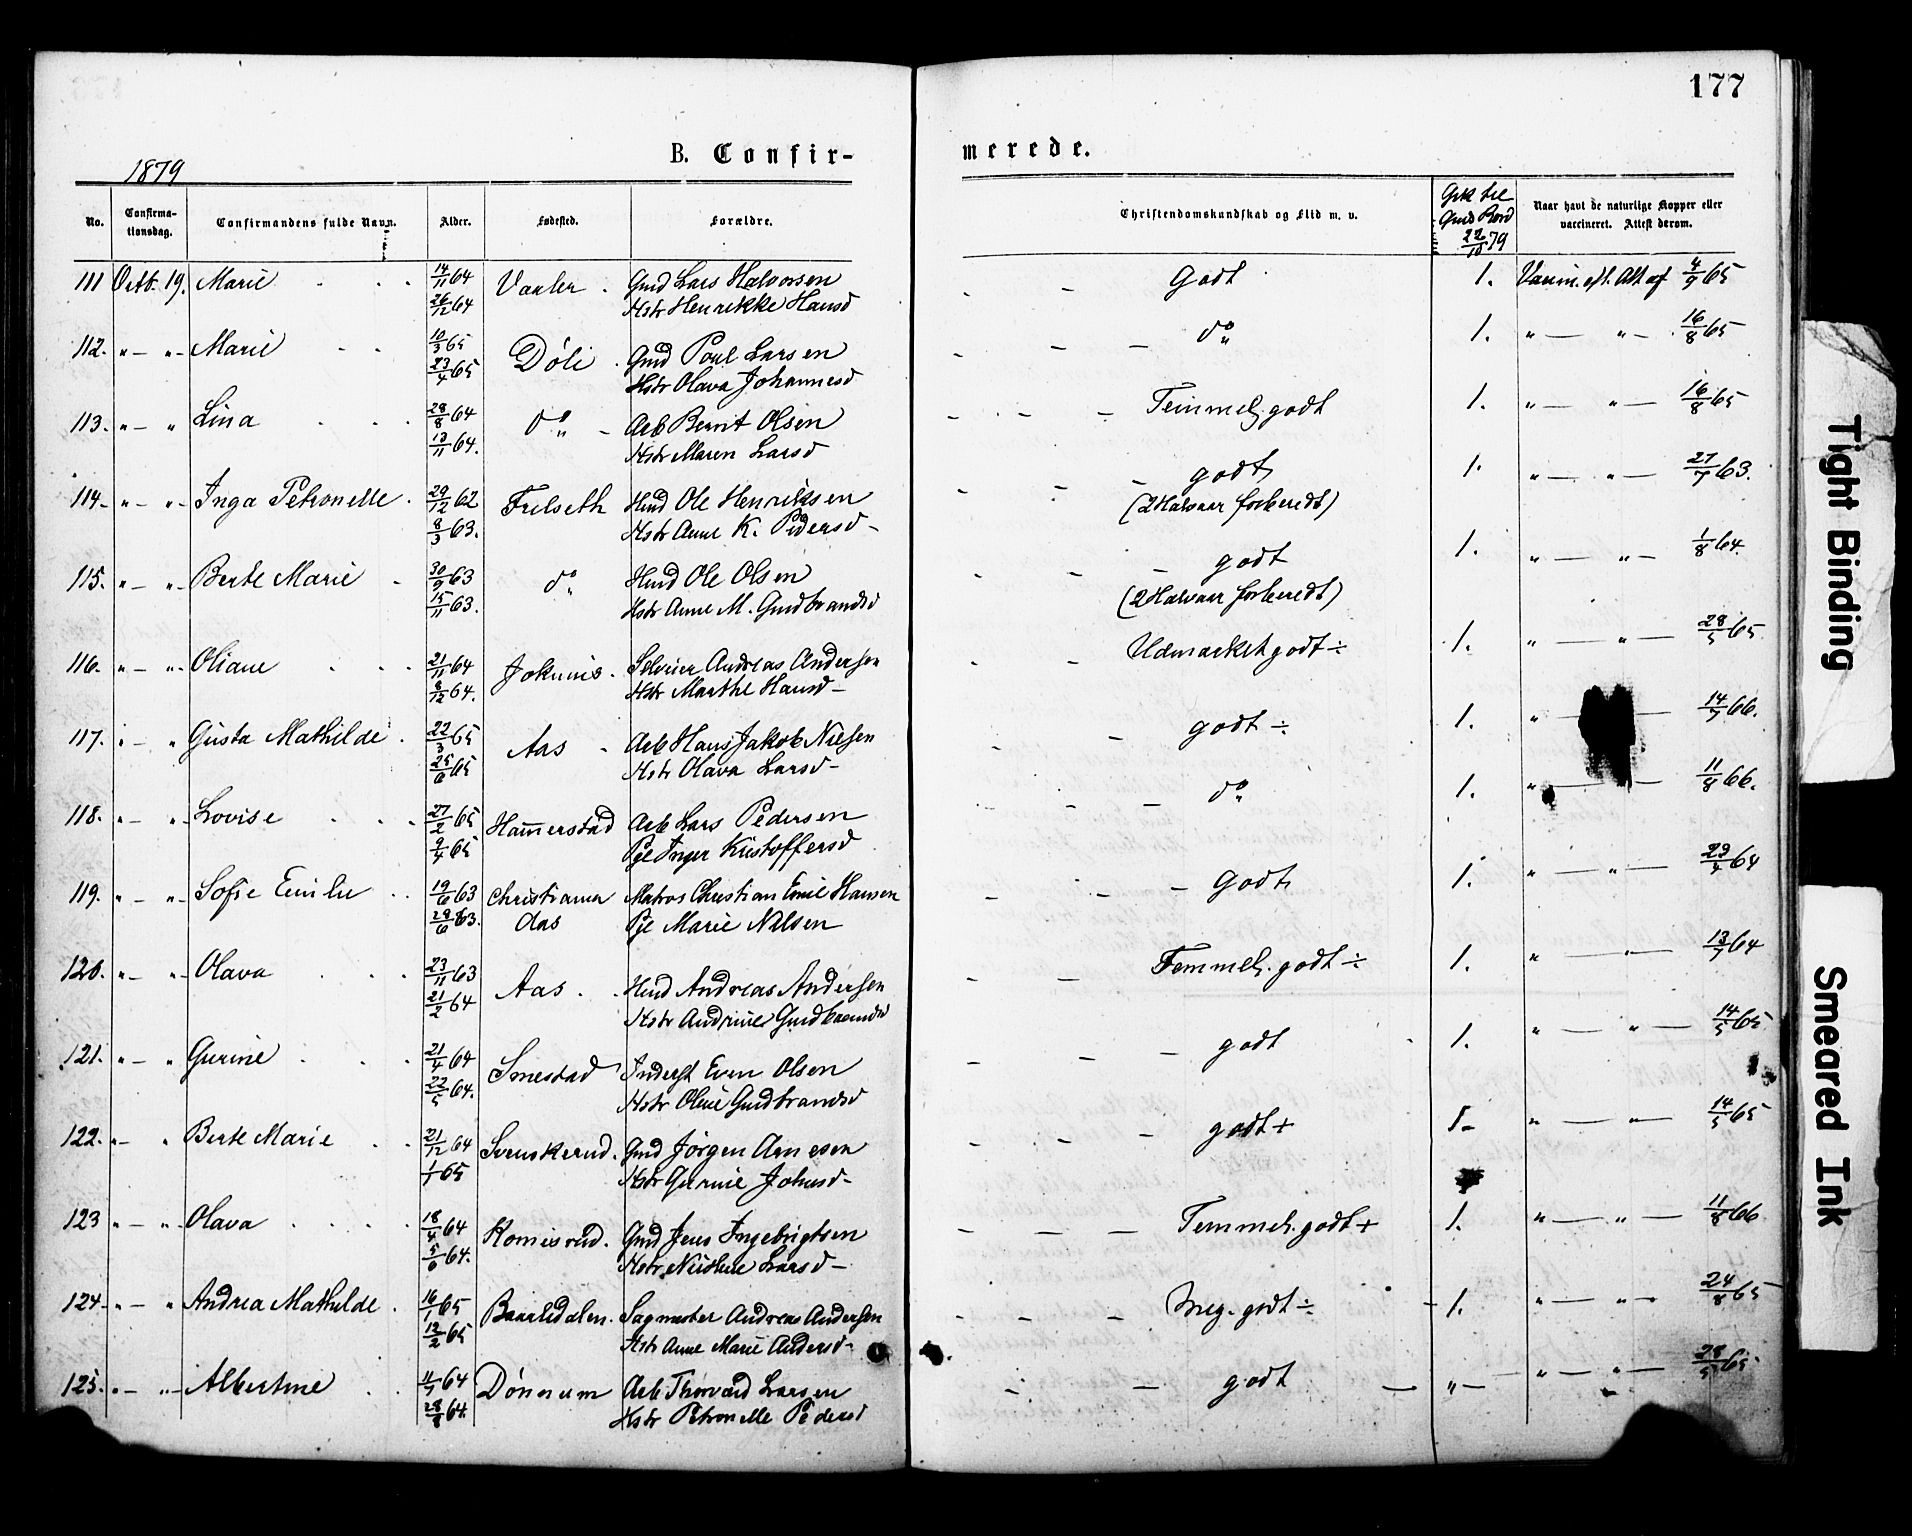 177
1879
B. Confir-
merede.
No.
Confirma-
tionsdag.
Confirmandens fulde Navn.
Alder.
Fødested.
Forældre.
Christendomskundskab og Flid m. v.
Gik til
Guds Bord
22/10 79
Naar havt de naturlige Kopper eller
vaccineret. Attest derom.
111 Octb. 19. Marie 14/11 64 Vaaler Gmd Lars Halvorsen Godt 1. Vaccin. eft. Att af 4/9 65
26/12 64 Hstr Henrikke Hansd
112. " — " - Marie 10/3 65 Døli Gmd Poul Larsen do 1. " — " — 16/8 65
23/4 65 Hstr Olava Johannesd
113. " — " Lina 28/8 64 do Arb Bernt Olsen Temmel. godt 1. " — " — 16/8 65
13/11 64. Hstr Maren Larsd
114. " — " - Inga Petronelle 29/12 62 Frelseth Hmd Ole Henriksen godt 1. " — " — 27/7 63.
8/3 63. Hstr Anne K. Pedersd - (2 Halvaar forberedt)
115. " — " - Berte Marie 30/9 63 do Hmd Ole Olsen godt 1. " — " — 1/8 64.
15/11 63. Hstr Anne M. Gudbrandsd (2 Halvaar forberedt)
116. " — " - Oliane 21/11 64 Selveier Andreas Andersen Udmærket godt ÷ 1. " — " — 28/5 65
8/12 64. Hstr Marthe Hansd -
117. " — " Gusta Mathilde 22/3 65 Aas Arb Hans Jakob Nilsen godt ÷ 1. " — 14/7 66.
25/6 65 Hstr Olava Larsd -
118. " — " - Lovise 27/2 65 Hammerstad Arb Lars Pedersen do 1. " — 11/8 66.
9/4 65 Pge Inger Kristoffersd
119. " — " - Sofie Emilie 19/6 63 Christiania Matros Christian Emil Hansen Godt 1. " — " — 29/4 64
28/6 63. Aas Pge Marie Nilsen
120. " — " - Olava 23/11 63 Aas Hmd Andreas Andersen Temmel. godt ÷ 1. " — " — 13/7 64
21/2 64 Hstr Andrine Gudbrandsd
121. " — " Gurine 21/4 64 Smestad Inderst Even Olsen godt 1. " — " — 14/5 65
22/5 64. Hstr Oline Gudbrandsd
122. " — " Berte Marie 21/12 64 Svenskerud Gmd Jørgen Arnesen godt + 1. " — " — 14/5 65
1/1 65 Hstr Gurine Johnsd -
123 " — " - Olava 18/4 64 Komisrud Gmd Jens Ingebrigtsen Temmel. godt + 1. " — " — 11/8 66
5/6 64. Hstr Larsd -
124. " — " Andrea Mathilde 16/1 65 Baarlidalen Sagmester Andreas Andersen Meg. godt ÷ 1. " — " — 24/8 65
12/2 65 Hstr Anne Marie Andersd -
125. " — " - Albertine 11/7 64 Dønnum Arb Thorvald Larsen godt " — " — " — 28/5 65
28/8 64. Hstr Petronelle Pedersd
Tight Binding
Smeared Ink